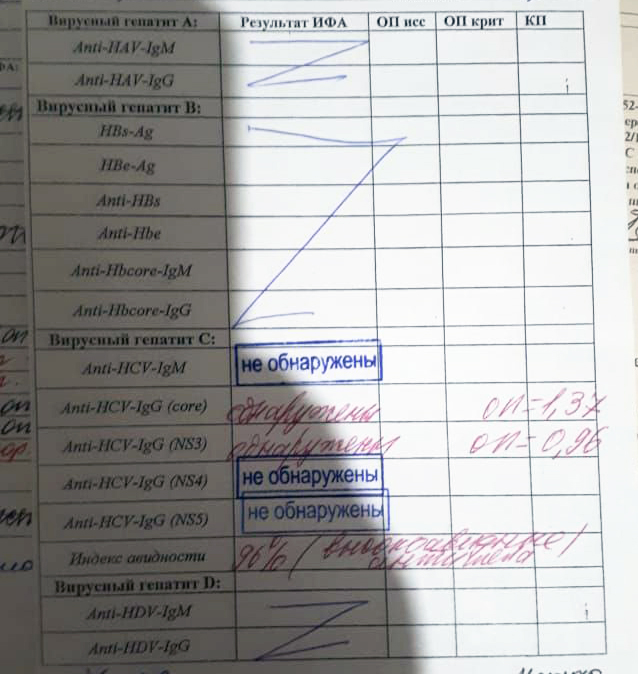 Вирусный гепатит А: Результат ИФА ОП исс ОП крит КП
Anti-HAV-IgM
Anti-HAV-IgG
Вирусный гепатит В:
HBs-Ag
HBe-Ag
Anti-HBs
Anti-Hbe
Anti-Hbcore-IgM
Anti-Hbcore-IgG
Вирусный гепатит С:
Anti-HCV-IgM не обнаружены
Anti-HCV-IgG (core) обнаружены оп=1,37
Anti-HCV-IgG (NS3) обнаружены оп=0,96
Anti-HCV-IgG (NS4) не обнаружены
Anti-HCV-IgG (NS5) не обнаружены
Индекс авидности 96% (высокоавидные антитела)
Вирусный гепатит D:
Anti-HDV-IgM
Anti-HDV-IgG